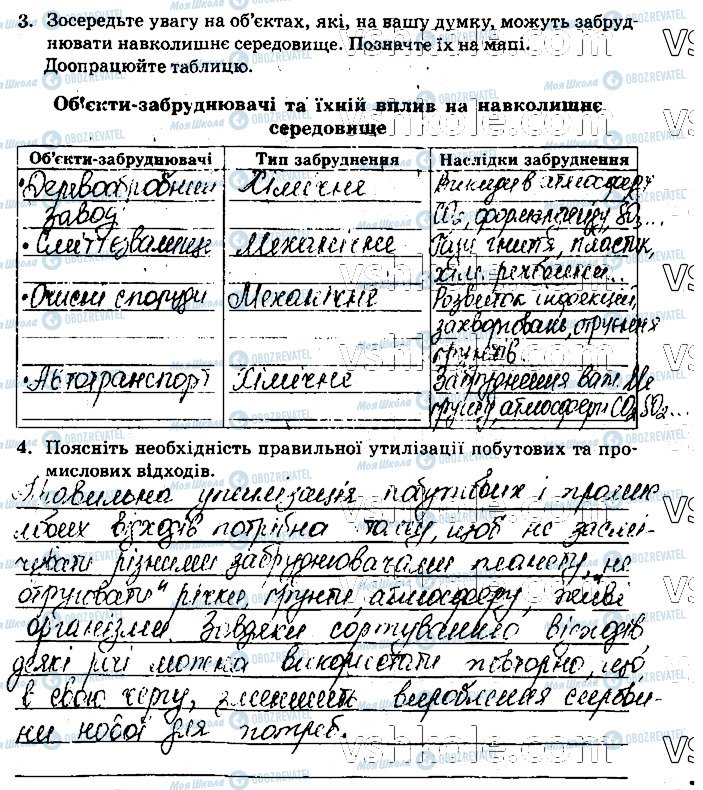 3. Зосередьте увагу на об'єктах, які, на вашу думку, можуть забруд-
нювати навколишнє середовище. Позначте їх на мапі.
Доопрацюйте таблицю.
Об'єкти-забруднювачі та їхній вплив на навколишнє
середовище
Об'єкти-забруднювачі Тип забруднення Наслідки забруднення
• Деревообробний Хімічне Викиди в атмосферу
завод CO₂, формальдегіду, SO₂...
• Сміттєзвалище Механічне Гази гниття, пластик,
хім. речовини...
• Очисні споруди Механічне Розвиток інфекцій,
захворювань, отруєння
ґрунтів
• Автотранспорт Хімічне Забруднення важ. Ме
ґрунту, атмосфери CO₂, SO₂...
4. Поясніть необхідність правильної утилізації побутових та про-
мислових відходів.
Правильна утилізація побутових і промис-
лових відходів потрібна тому, щоб не засмі-
чувати різними забруднювачами планету, не
"отруювати" річки, ґрунти, атмосферу, живі
організми. Завдяки сортуванню відходів,
деякі речі можна використати повторно, що
в свою чергу, зменшить вироблення сирови-
ни нової для потреб.
vshkole.com
Моя Школа OBOZREVATEL